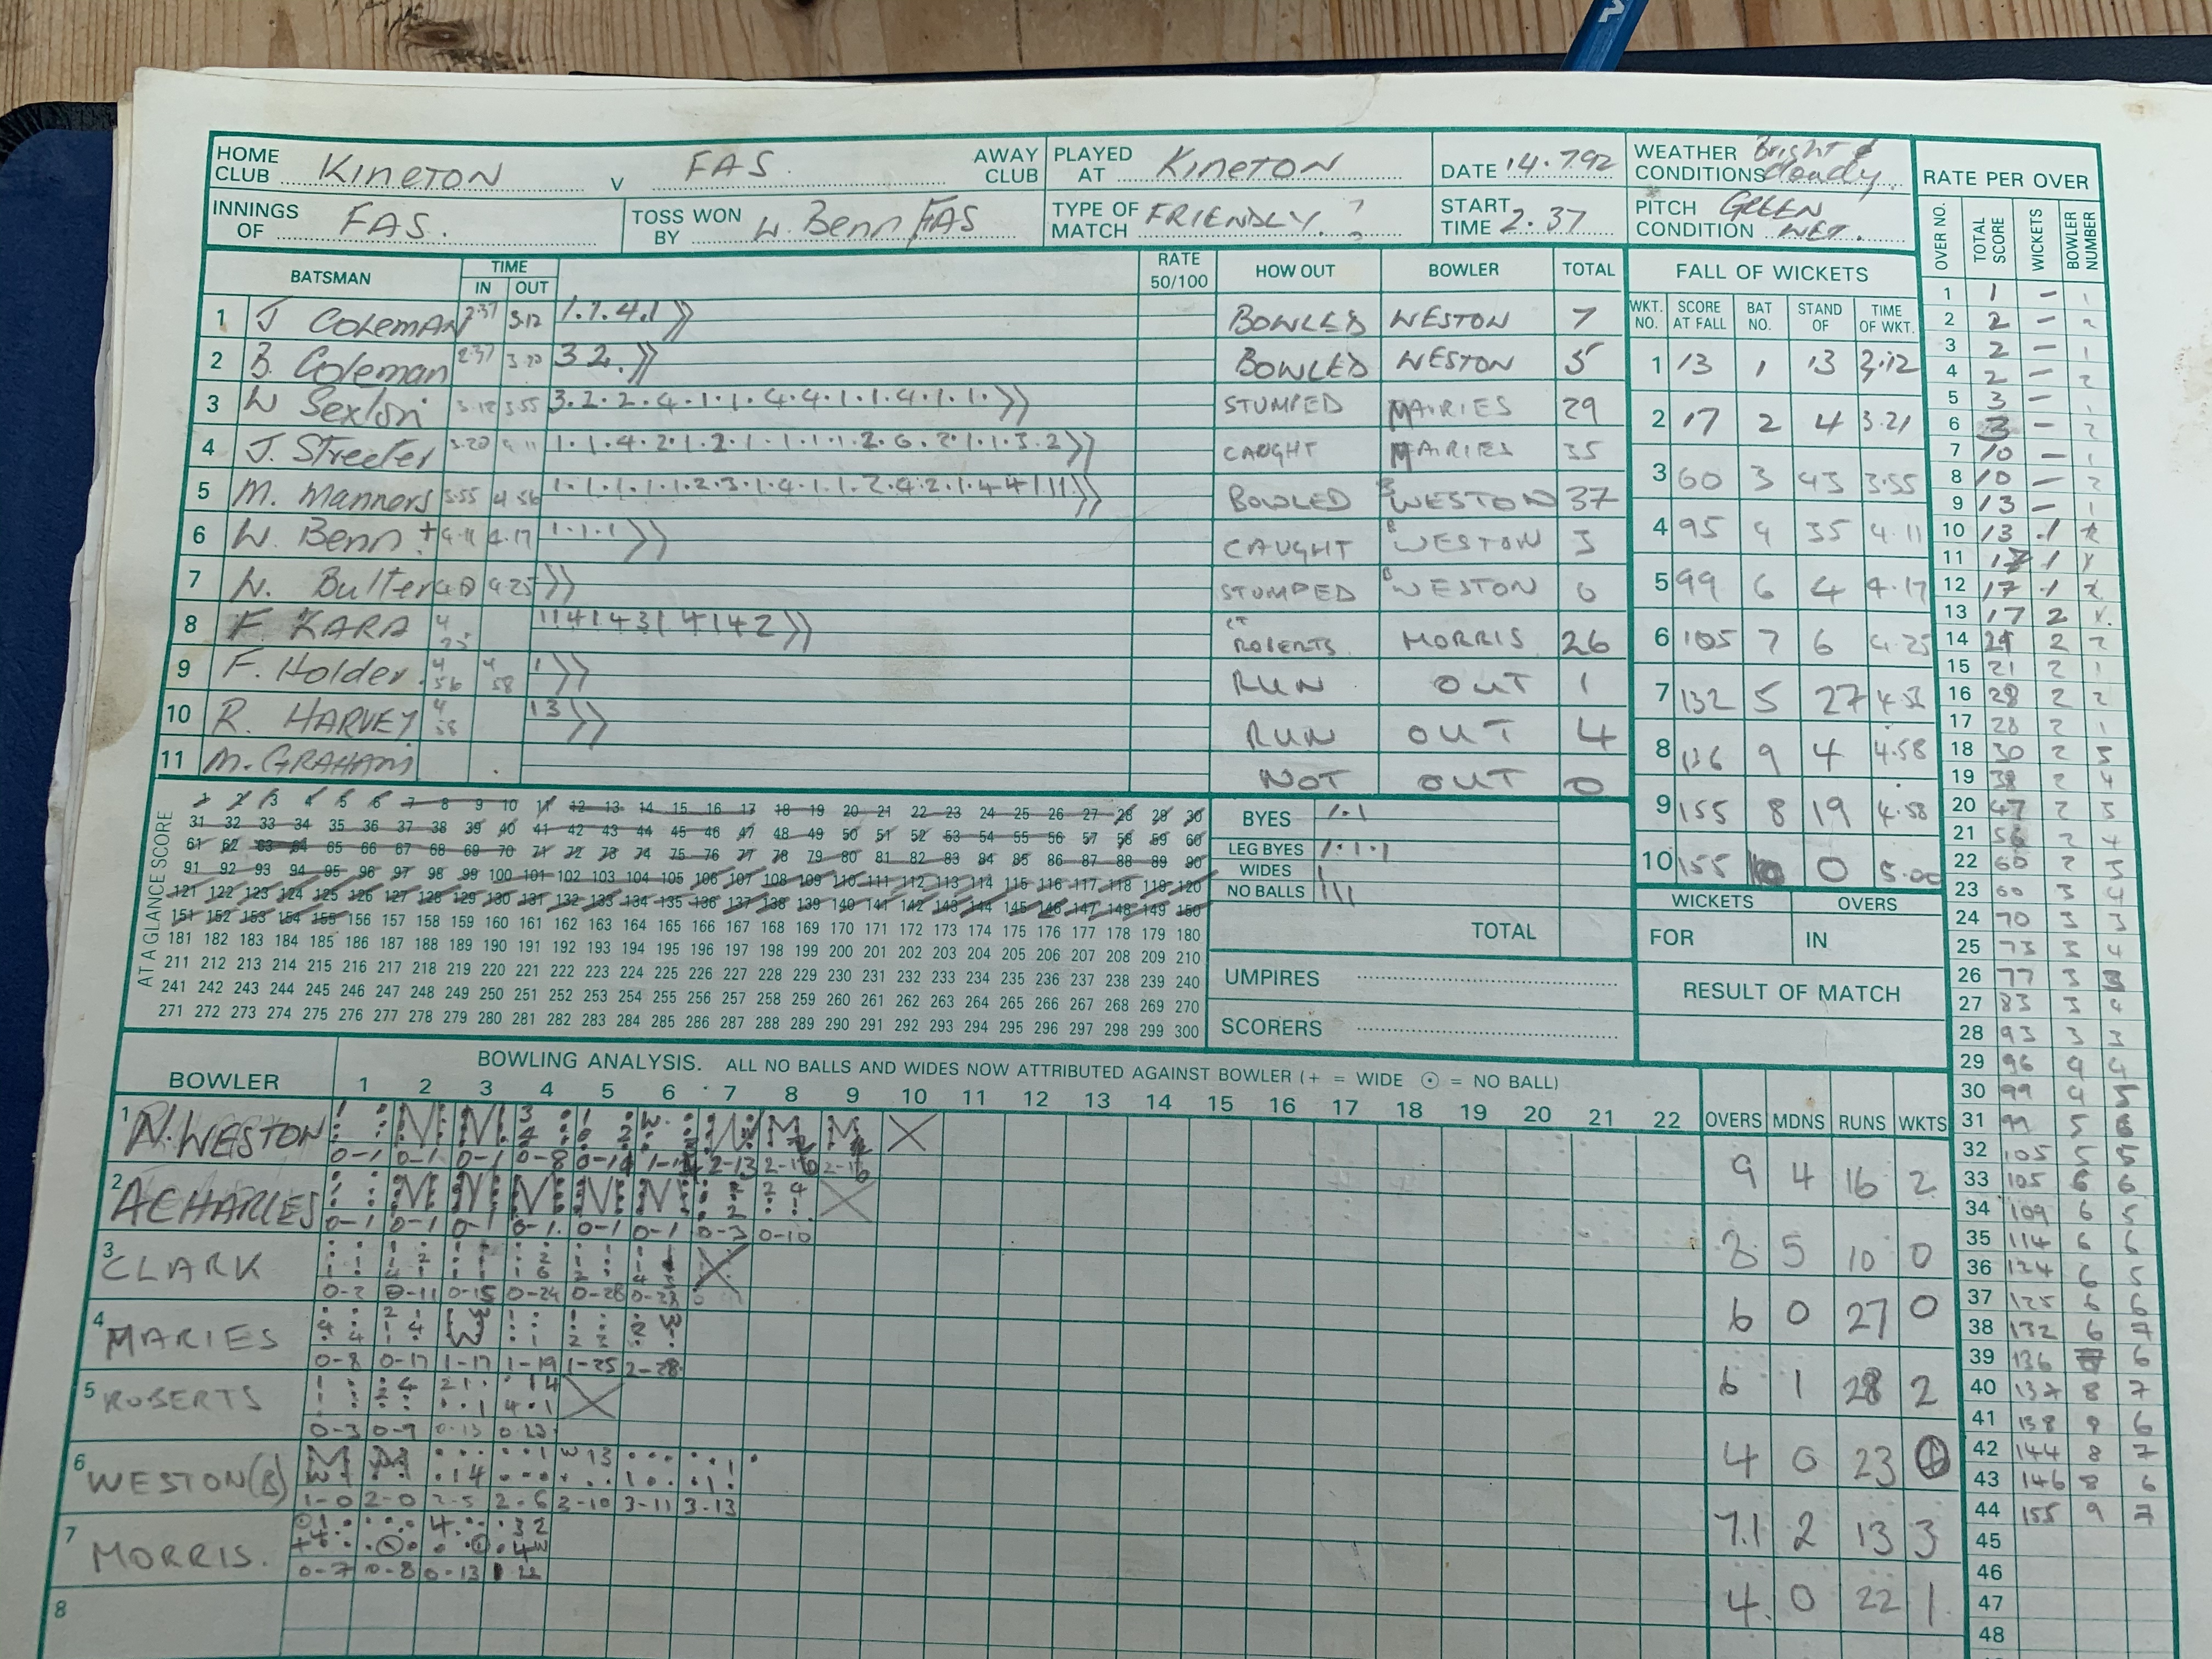 HOME CLUB Kineton v FAS. AWAY CLUB PLAYED AT Kineton DATE 14.7.92 WEATHER CONDITIONS Bright & cloudy.
INNINGS OF FAS. TOSS WON BY W. Benn FAS TYPE OF MATCH FRIENDLY. ? START TIME 2.37 PITCH CONDITION GREEN WET.
BATSMAN TIME IN OUT RATE 50/100 HOW OUT BOWLER TOTAL
1 J COLEMAN 2.37 3.12 1.1.4.1 BOWLED WESTON 7
2 B. Coleman 2.37 3.20 3 2. BOWLED WESTON 5
3 W Sexton 3.12 3.55 3.2.2.4.1.1.4.4.1.1.4.1.1. STUMPED MAIRIES 29
4 J. Streeter 3.20 4.11 1.1.4.2.1.2.1.1.1.1.2.6.2.1.1.3.2 CAUGHT MAIRIES 35
5 M. Manners 3.55 4.56 1.1.1.1.1.2.3.1.4.1.1.2.4.2.1.4 4 1 1 1 BOWLED B WESTON 37
6 W. Benn + 4.11 4.17 1.1.1 CAUGHT B WESTON 3
7 4.25 STUMPED B WESTON 0
8 F. KARA 4 25 1 1 4 1 4 3 1 4 1 4 2 CT ROBERTS MORRIS 26
9 F. Holder. 4 56 4 58 1 RUN OUT 1
10 R. HARVEY 4 58 1 3 RUN OUT 4
11 M. GRAHAM NOT OUT 0
FALL OF WICKETS
WKT. NO. SCORE AT FALL BAT NO. STAND OF TIME OF WKT.
1 13 1 13 3.12
2 17 2 4 3.21
3 60 3 43 3.55
4 95 4 35 4.11
5 99 6 4 4.17
6 105 7 6 4.25
7 132 5 27
8 136 9 4 4.58
9 155 8 19 4.58
10 155 0 5.00
WICKETS OVERS
FOR IN
RESULT OF MATCH
AT A GLANCE SCORE
1 2 3 4 5 6 7 8 9 10 11 12 13 14 15 16 17 18 19 20 21 22 23 24 25 26 27 28 29 30
31 32 33 34 35 36 37 38 39 40 41 42 43 44 45 46 47 48 49 50 51 52 53 54 55 56 57 58 59 60
61 62 63 64 65 66 67 68 69 70 71 72 73 74 75 76 77 78 79 80 81 82 83 84 85 86 87 88 89 90
91 92 93 94 95 96 97 98 99 100 101 102 103 104 105 106 107 108 109 110 111 112 113 114 115 116 117 118 119 120
121 122 123 124 125 126 127 128 129 130 131 132 133 134 135 136 137 138 139 140 141 142 143 144 145 146 147 148 149 150
151 152 153 154 155 156 157 158 159 160 161 162 163 164 165 166 167 168 169 170 171 172 173 174 175 176 177 178 179 180
181 182 183 184 185 186 187 188 189 190 191 192 193 194 195 196 197 198 199 200 201 202 203 204 205 206 207 208 209 210
211 212 213 214 215 216 217 218 219 220 221 222 223 224 225 226 227 228 229 230 231 232 233 234 235 236 237 238 239 240
241 242 243 244 245 246 247 248 249 250 251 252 253 254 255 256 257 258 259 260 261 262 263 264 265 266 267 268 269 270
271 272 273 274 275 276 277 278 279 280 281 282 283 284 285 286 287 288 289 290 291 292 293 294 295 296 297 298 299 300
BYES 1.1
LEG BYES 1.1.1
WIDES 1
NO BALLS 111
TOTAL
UMPIRES
SCORERS
BOWLING ANALYSIS. ALL NO BALLS AND WIDES NOW ATTRIBUTED AGAINST BOWLER (+ = WIDE ⊙ = NO BALL)
BOWLER 1 2 3 4 5 6 7 8 9 10 11 12 13 14 15 16 17 18 19 20 21 22 OVERS MDNS RUNS WKTS
1 N. WESTON 0-1 0-1 0-1 0-8 2-13 9 4 16 2
2 A CHARLES 0-1 0-1 0-1 0-1. 0-1 0-1 0-3 0-10 8 5 10 0
3 CLARK 0-2 0-11 0-15 0-24 0-26 6 0 27 0
4 MARIES 0-8 0-17 1-17 1-19 1-25 2-28 6 1 28 2
5 ROBERTS 0-3 0-9 0-13 0-23 4 0 23
6 WESTON(B) 1-0 2-0 2-5 2-6 3-10 3-11 3-13 7.1 2 13 3
7 MORRIS. 0-7 0-8 0-13 1 22 4. 0 22 1
8
RATE PER OVER
OVER NO. TOTAL SCORE WICKETS BOWLER NUMBER
1 1 – 1
2 2 – 2
3 2 – 1
4 2 – 2
5 3 – 1
6 3 – 2
7 10 – 1
8 10 – 2
9 13 – 1
10 13 .1 2
11 17 1
12 17 .1 2
13 17 2
14 2 2
15 21 2 1
16 28 2 2
17 28 2 1
18 30 2 3
19 38 2 4
20 47 2 3
21 56 2 4
22 60 2 3
23 60 3 4
24 70 3 3
25 73 3 4
26 77 3 3
27 83 3 4
28 93 3 3
29 96 4 4
30 99 4 5
31 99 5 6
32 105 5 5
33 105 6 6
34 109 6 5
35 114 6 6
36 124 6 5
37 125 6 6
38 132 6 7
39 136 6
40 137 8 7
41 138 6
42 144 8 7
43 146 8 6
44 155 9 7
45
46
47
48